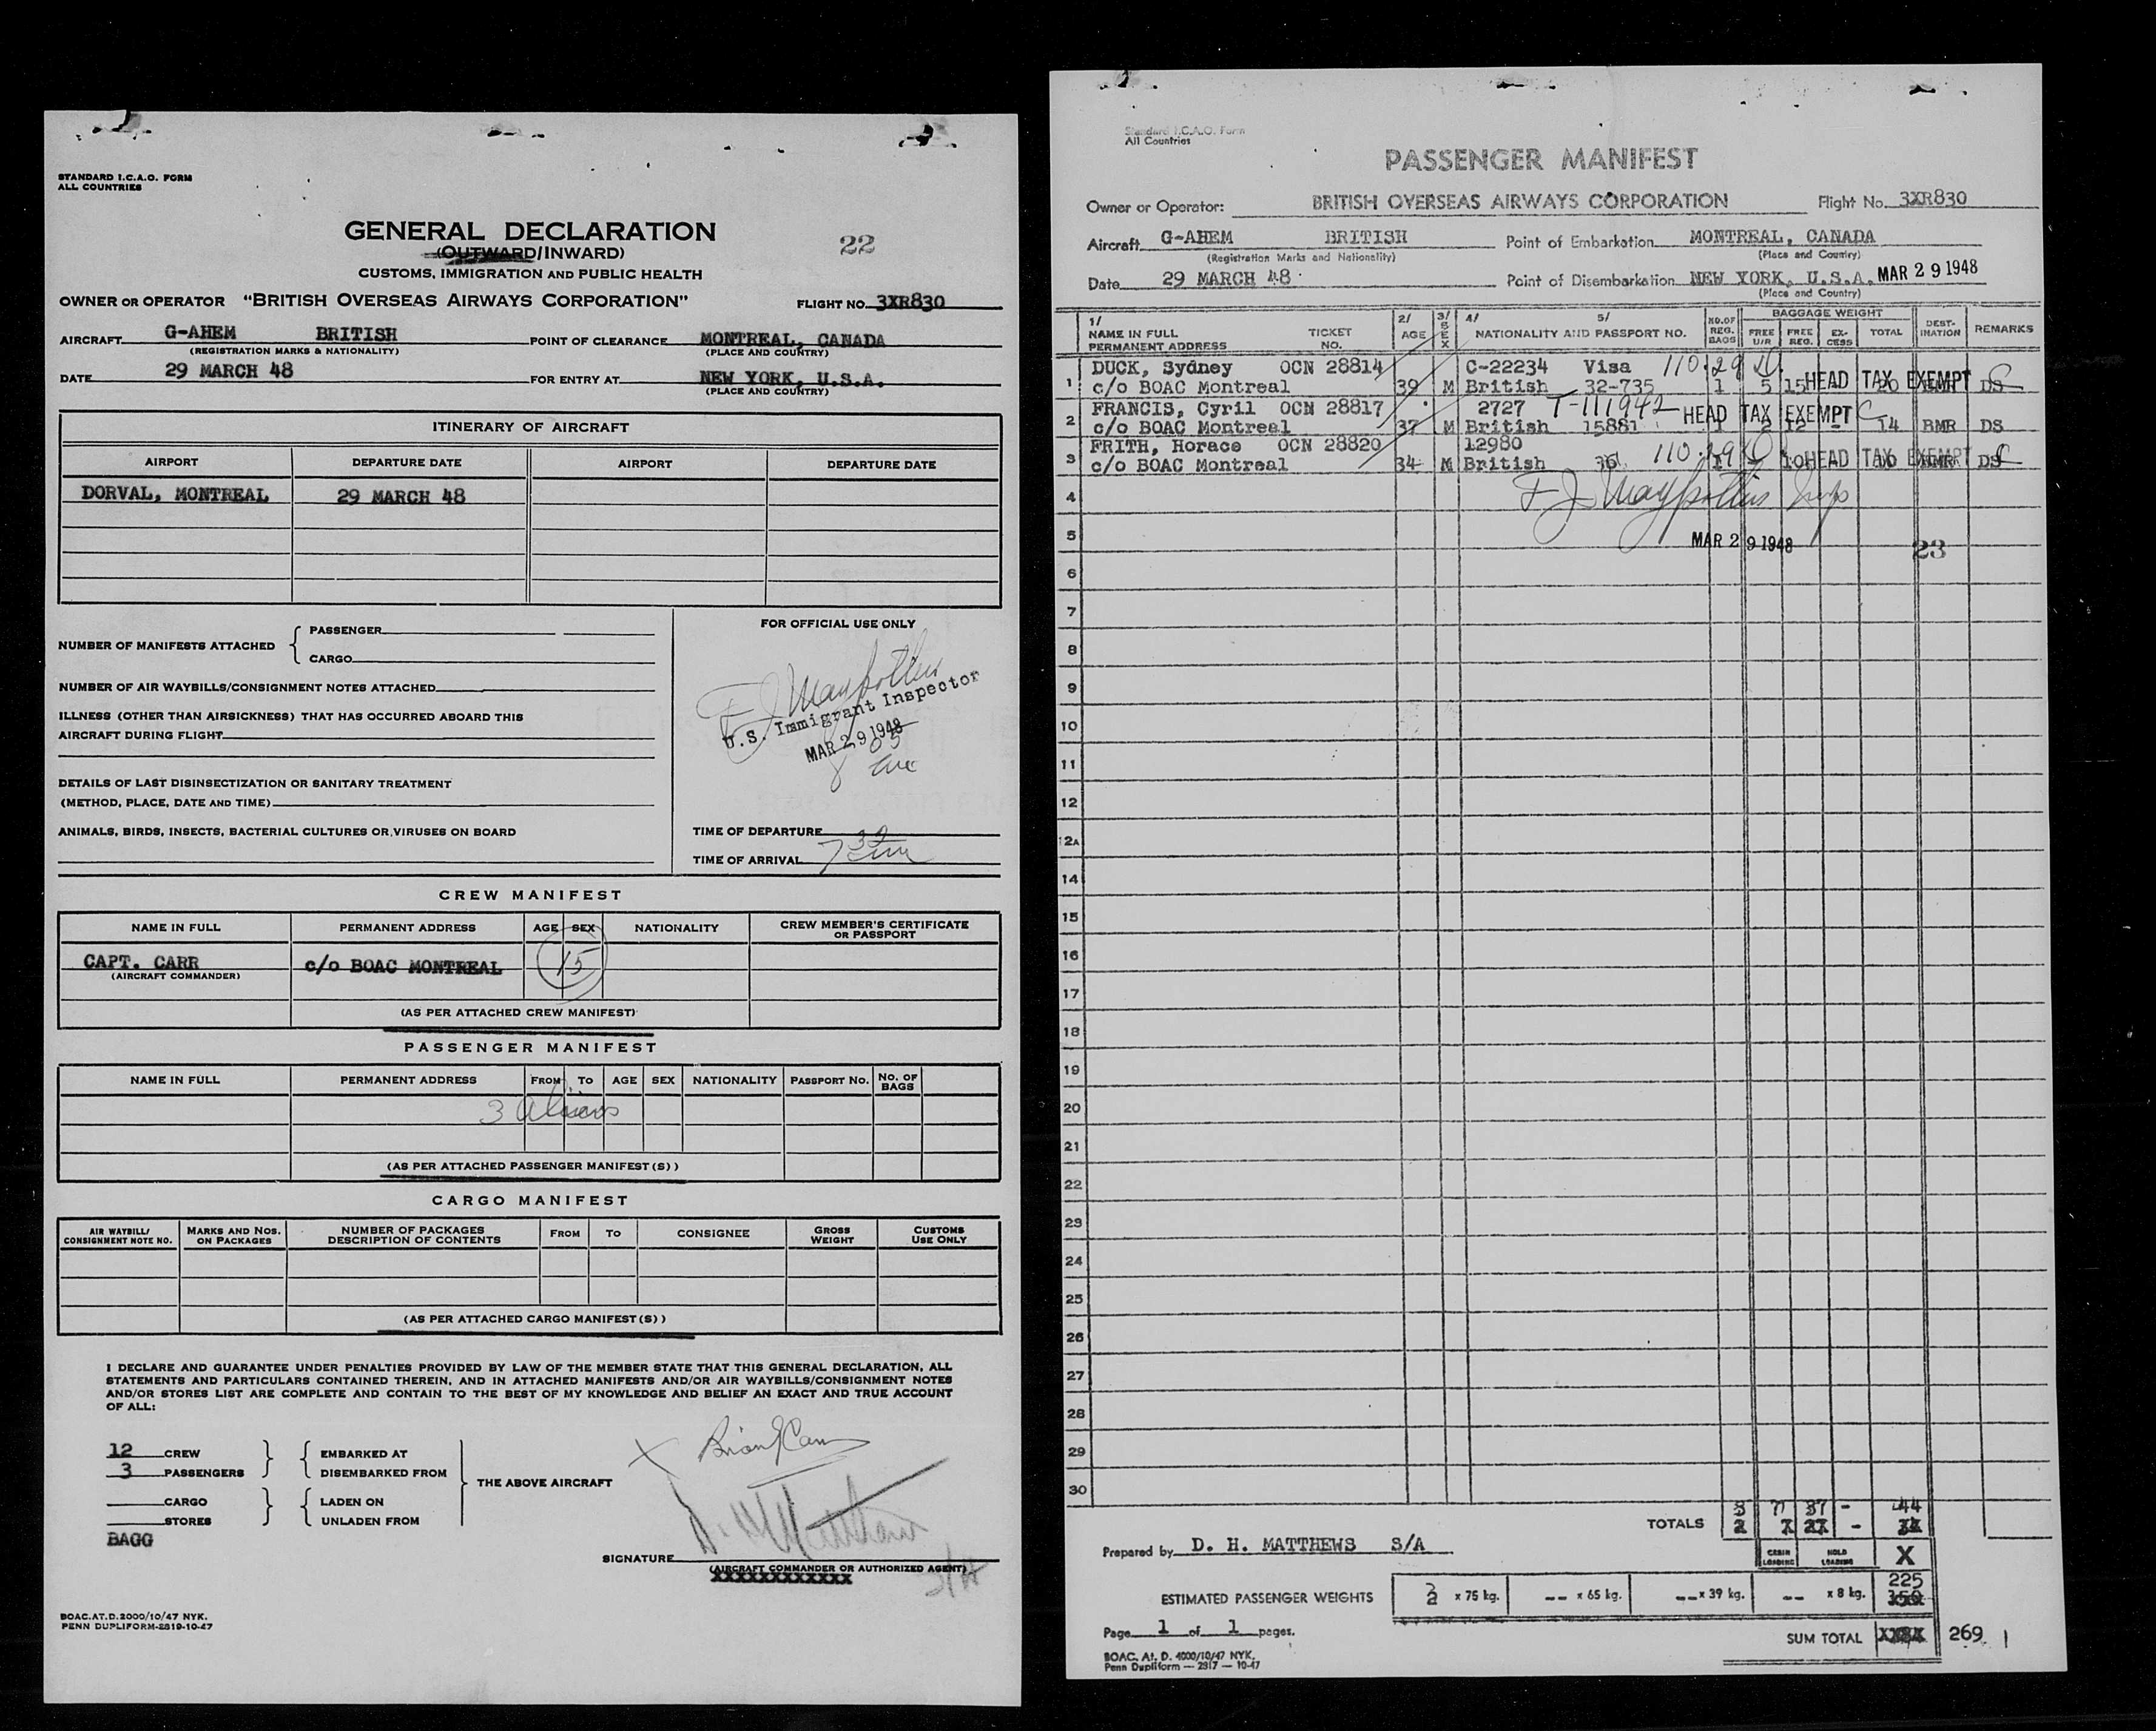 STANDARD I.C.A.O. FORM
ALL COUNTRIES
GENERAL DECLARATION
(OUTWARD/INWARD)
22
CUSTOMS, IMMIGRATION AND PUBLIC HEALTH
OWNER OR OPERATOR "BRITISH OVERSEAS AIRWAYS CORPORATION" FLIGHT NO. 3XR830
AIRCRAFT G-AHEM BRITISH POINT OF CLEARANCE MONTREAL, CANADA
(REGISTRATION MARKS & NATIONALITY) (PLACE AND COUNTRY)
DATE 29 MARCH 48 FOR ENTRY AT NEW YORK, U.S.A.
(PLACE AND COUNTRY)
ITINERARY OF AIRCRAFT
AIRPORT DEPARTURE DATE AIRPORT DEPARTURE DATE
DORVAL, MONTREAL 29 MARCH 48
NUMBER OF MANIFESTS ATTACHED { PASSENGER
CARGO
NUMBER OF AIR WAYBILLS/CONSIGNMENT NOTES ATTACHED
ILLNESS (OTHER THAN AIRSICKNESS) THAT HAS OCCURRED ABOARD THIS
AIRCRAFT DURING FLIGHT
DETAILS OF LAST DISINSECTIZATION OR SANITARY TREATMENT
(METHOD, PLACE, DATE AND TIME)
ANIMALS, BIRDS, INSECTS, BACTERIAL CULTURES OR VIRUSES ON BOARD
FOR OFFICIAL USE ONLY
U.S. Immigrant Inspector
MAR 29 1948
TIME OF DEPARTURE
TIME OF ARRIVAL
CREW MANIFEST
NAME IN FULL PERMANENT ADDRESS AGE SEX NATIONALITY CREW MEMBER'S CERTIFICATE OR PASSPORT
CAPT. CARR c/o BOAC MONTREAL 15
(AIRCRAFT COMMANDER)
(AS PER ATTACHED CREW MANIFEST)
PASSENGER MANIFEST
NAME IN FULL PERMANENT ADDRESS FROM TO AGE SEX NATIONALITY PASSPORT NO. NO. OF BAGS
3 aliens
(AS PER ATTACHED PASSENGER MANIFEST(S))
CARGO MANIFEST
AIR WAYBILL/ CONSIGNMENT NOTE NO. MARKS AND NOS. ON PACKAGES NUMBER OF PACKAGES DESCRIPTION OF CONTENTS FROM TO CONSIGNEE GROSS WEIGHT CUSTOMS USE ONLY
(AS PER ATTACHED CARGO MANIFEST(S))
I DECLARE AND GUARANTEE UNDER PENALTIES PROVIDED BY LAW OF THE MEMBER STATE THAT THIS GENERAL DECLARATION, ALL
STATEMENTS AND PARTICULARS CONTAINED THEREIN, AND IN ATTACHED MANIFESTS AND/OR AIR WAYBILLS/CONSIGNMENT NOTES
AND/OR STORES LIST ARE COMPLETE AND CONTAIN TO THE BEST OF MY KNOWLEDGE AND BELIEF AN EXACT AND TRUE ACCOUNT
OF ALL:
12 CREW EMBARKED AT
3 PASSENGERS DISEMBARKED FROM
THE ABOVE AIRCRAFT
CARGO LADEN ON
STORES UNLADEN FROM
BAGG
SIGNATURE
(AIRCRAFT COMMANDER OR AUTHORIZED AGENT)
XXXXXXXXXXXX
BOAC.AT.D.2000/10/47 NYK.
PENN DUPLIFORM-2819-10-47
Standard I.C.A.O. Form
All Countries
PASSENGER MANIFEST
Owner or Operator: BRITISH OVERSEAS AIRWAYS CORPORATION Flight No. 3XR830
Aircraft G-AHEM BRITISH Point of Embarkation MONTREAL, CANADA
(Registration Marks and Nationality) (Place and Country)
Date 29 MARCH 48 Point of Disembarkation NEW YORK, U.S.A. MAR 29 1948
(Place and Country)
1/ NAME IN FULL PERMANENT ADDRESS TICKET NO. 2/ AGE 3/ SEX 4/ 5/ NATIONALITY AND PASSPORT NO. NO.OF REG. BAGS BAGGAGE WEIGHT FREE U/R FREE REG. EX-CESS TOTAL DEST-INATION REMARKS
DUCK, Sydney OCN 28814 C-22234 Visa
1 c/o BOAC Montreal 39 M British 32-735 1 5 15 HEAD TAX EXEMPT DS
FRANCIS, Cyril OCN 28817 2727 T-111942 HEAD TAX EXEMPT
2 c/o BOAC Montreal 37 M British 15881 1 2 12 - 14 BMR DS
FRITH, Horace OCN 28820 12980
3 c/o BOAC Montreal 34 M British 10 HEAD TAX EXEMPT DS
4
MAR 29 1948
5
23
6
7
8
9
10
11
12
12A
14
15
16
17
18
19
20
21
22
23
24
25
26
27
28
29
30
3 7 37 - 44
TOTALS
Prepared by D. H. MATTHEWS S/A
CABIN LOADING HOLD LOADING X
225
ESTIMATED PASSENGER WEIGHTS 3 x 75 kg. -- x 65 kg. -- x 39 kg. -- x 8 kg.
Page 1 of 1 pages.
SUM TOTAL 269
BOAC. At. D. 4000/10/47 NYK.
Penn Dupliform — 2817 — 10-47